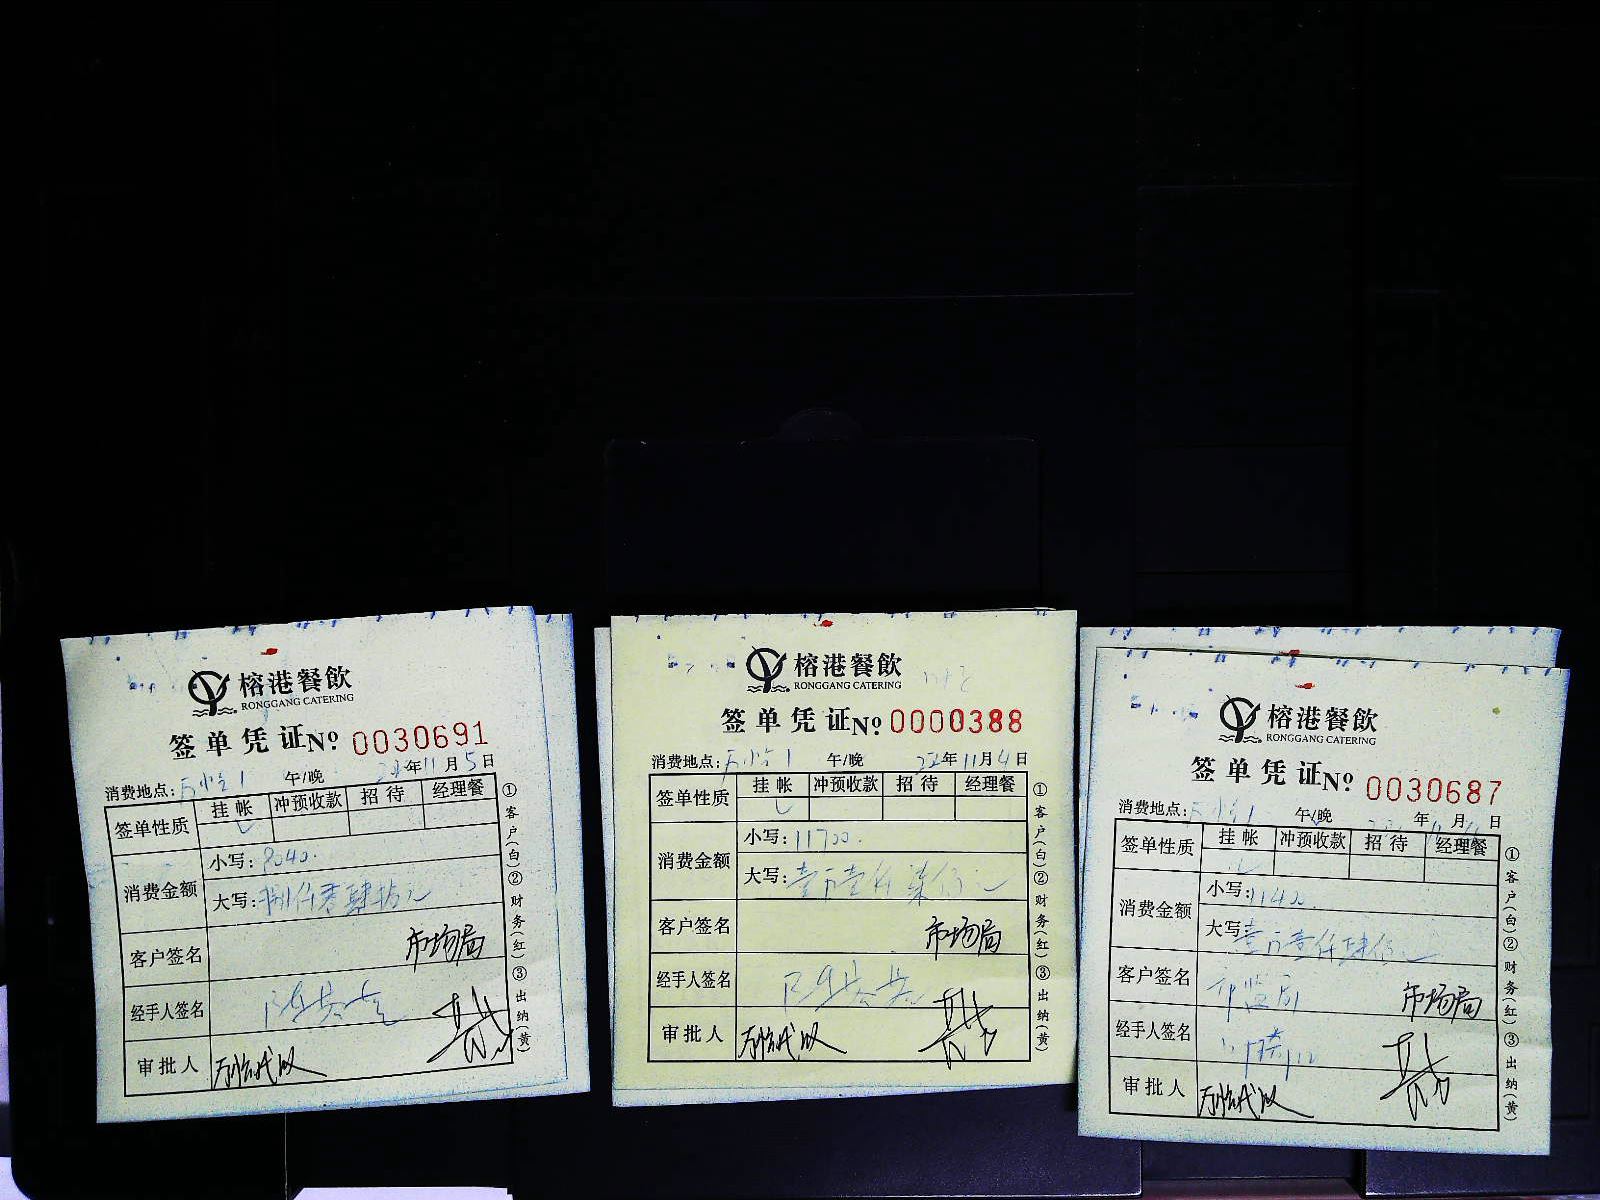 榕港餐飲
RONGGANG CATERING
签单凭证 № 0030691
消费地点: 午/晚 年11月5日
签单性质 挂帐 冲预收款 招待 经理餐
消费金额
小写: 8040.
大写: 捌仟零肆拾元
客户签名 市场局
经手人签名
审批人
①客户(白)②财务(红)③出纳(黄)
榕港餐飲
RONGGANG CATERING
签单凭证 № 0000388
消费地点: 午/晚 年11月4日
签单性质 挂帐 冲预收款 招待 经理餐
消费金额
小写: 11700.
大写: 壹万壹仟柒佰元
客户签名 市场局
经手人签名
审批人
①客户(白)②财务(红)③出纳(黄)
榕港餐飲
RONGGANG CATERING
签单凭证 № 0030687
消费地点: 午/晚 年 月 日
签单性质 挂帐 冲预收款 招待 经理餐
消费金额
小写: 11400.
大写: 壹万壹仟肆佰元
客户签名 市监局 市场局
经手人签名
审批人
①客户(白)②财务(红)③出纳(黄)